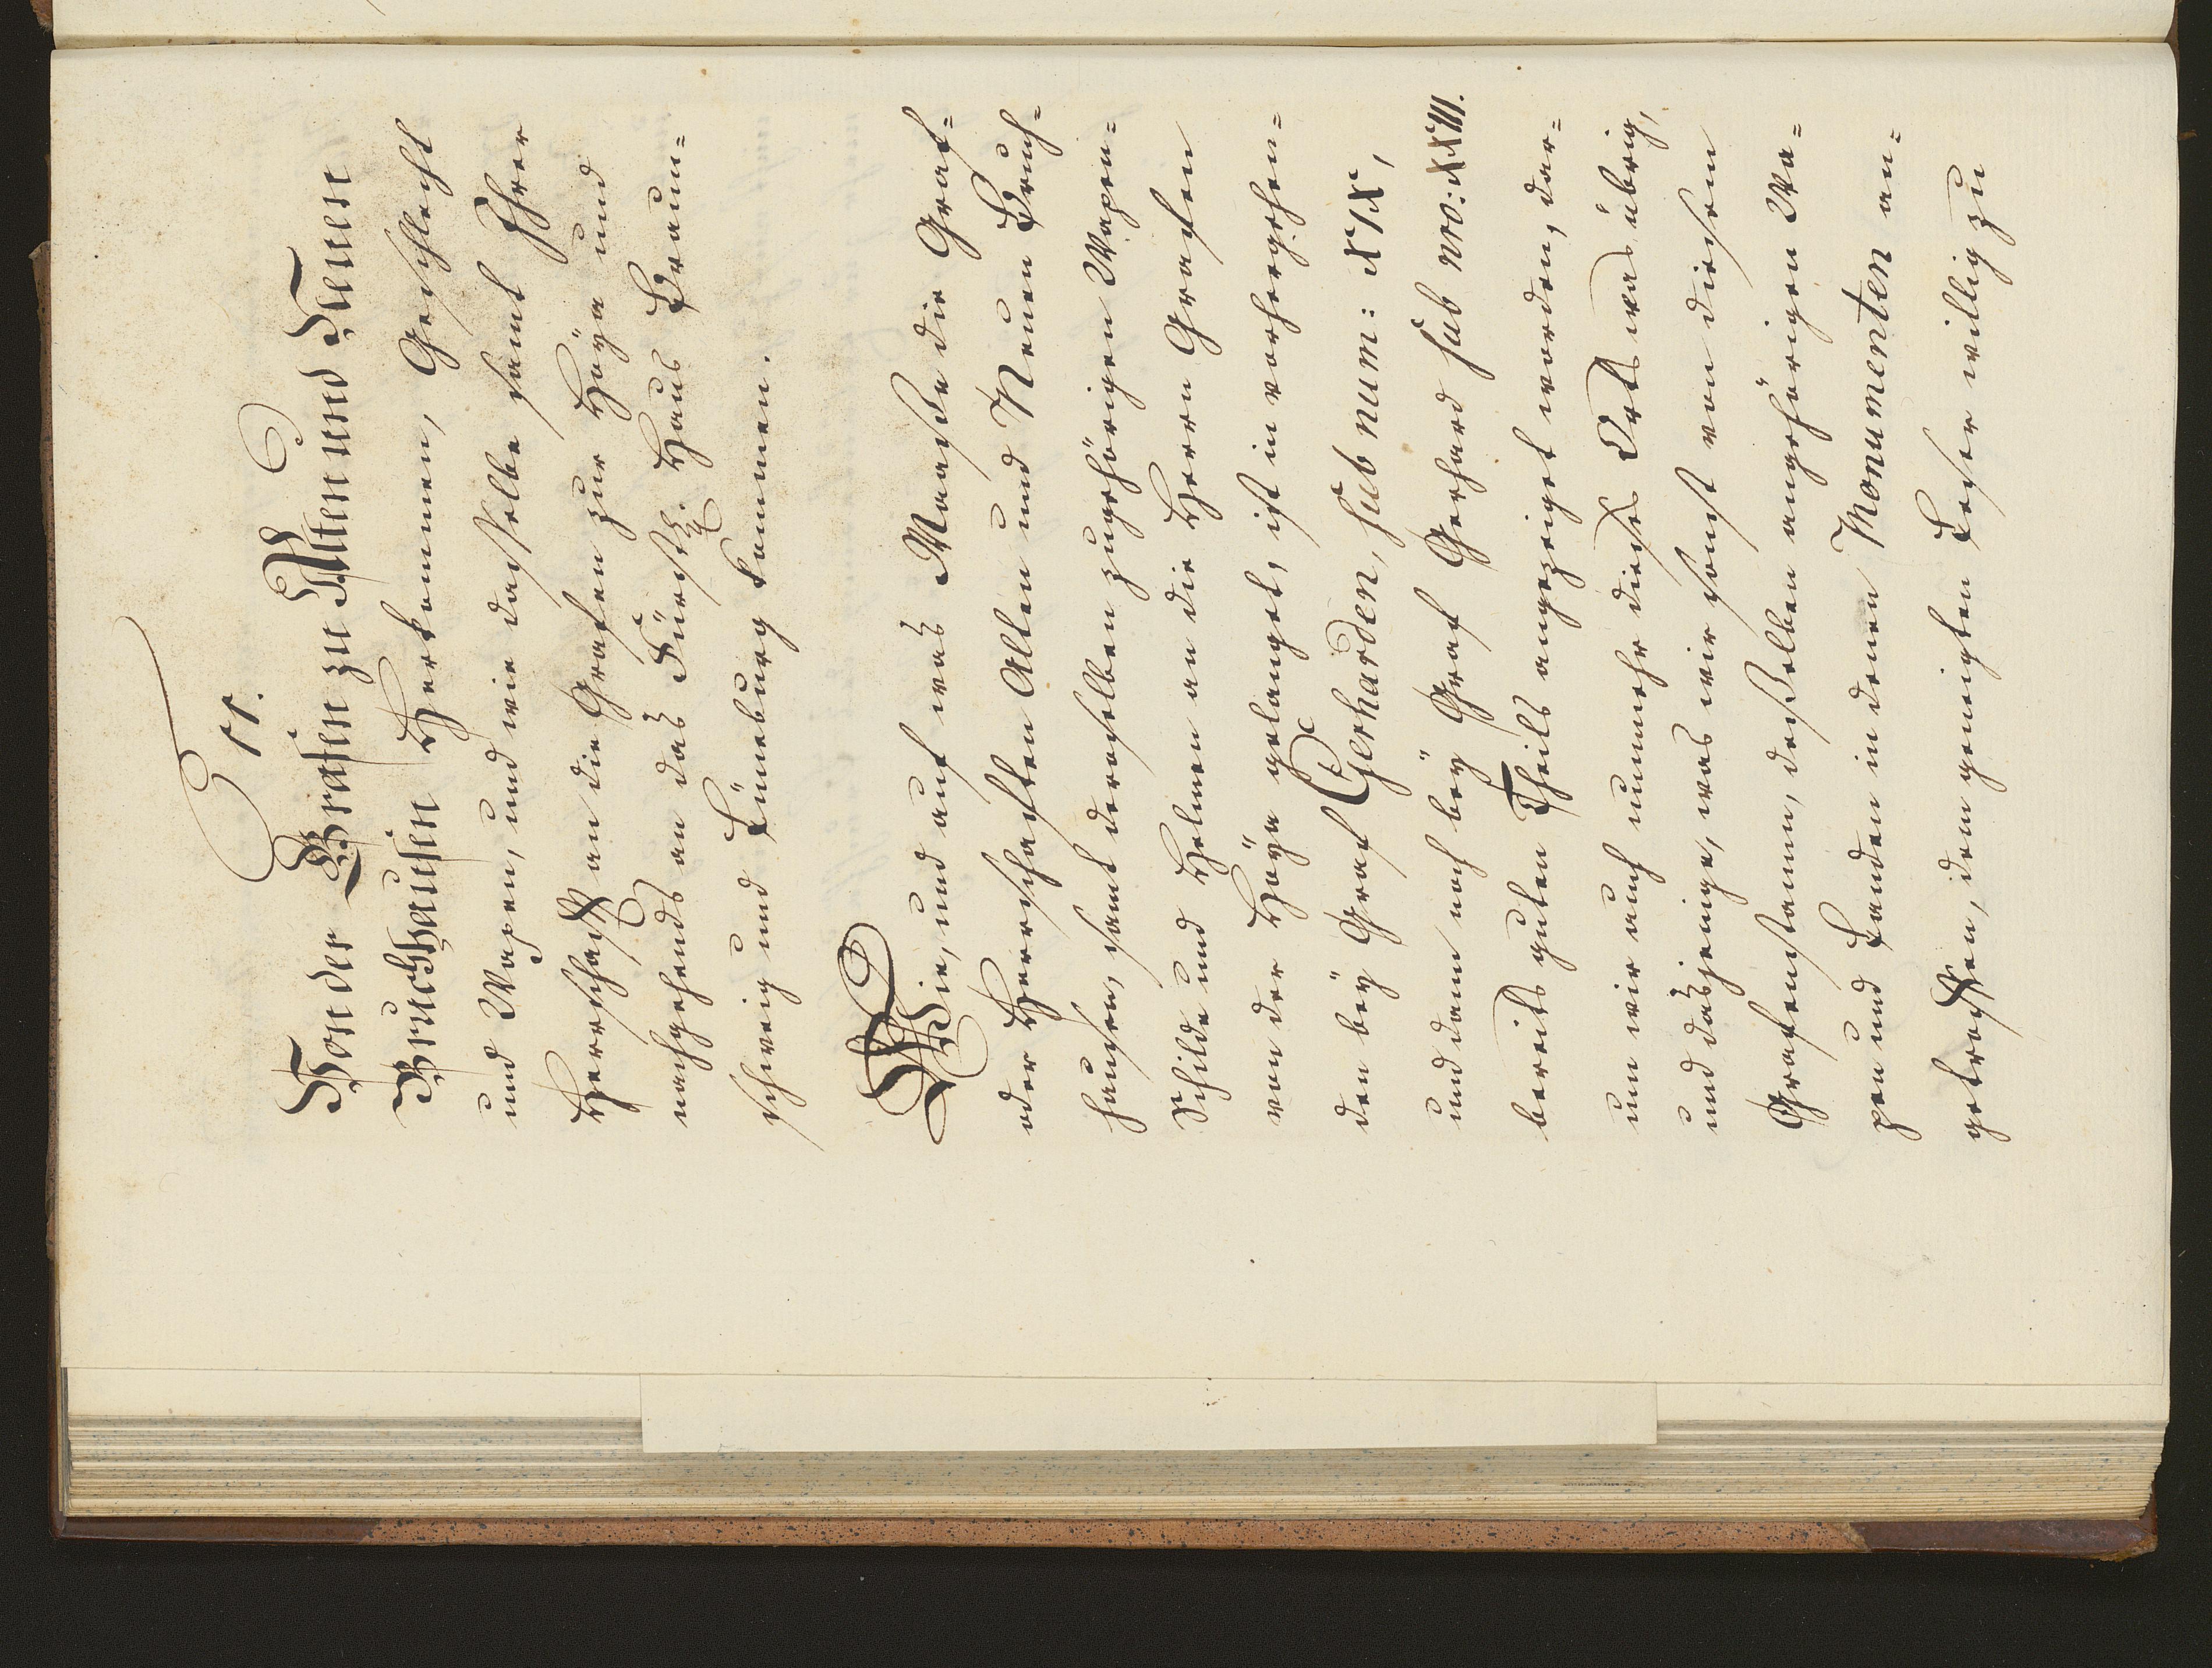 11.
Von der Grafen zu Alten und Neuen
Bruchhausen Herkommen, Geschlecht
und Wapen, und wie dasselbe samt Ihrer
Herrschafft an die Grafen zur Hoÿa und
nachgehends an das Fürstl. Haus Braun=
schweig und Lüneburg kommen.
Wie, und auf was Maasse die Graf=
oder Herrschafften Alten und Neuen Bruch=
hausen, samt deroselben zugehörigen Wapen=
Schilde und Helmen an die Herrn Grafen
von der Hoÿa gelanget, ist in vorhergehen=
den beÿ Graf Gerharden, sub num: XIX,
und dann noch beÿ Graf Gerhard sub nro: XXIII.
bereits guten Theils angezeiget worden, dar=
um wir auch nunmehr dieses Orts was übrig,
und dasjenige, was wir sonst von diesem
Grafenstamm, desselben angehörigen Wa=
pen und Landen in denen Monumenten an=
getroffen, dem geneigten Leser willig zu